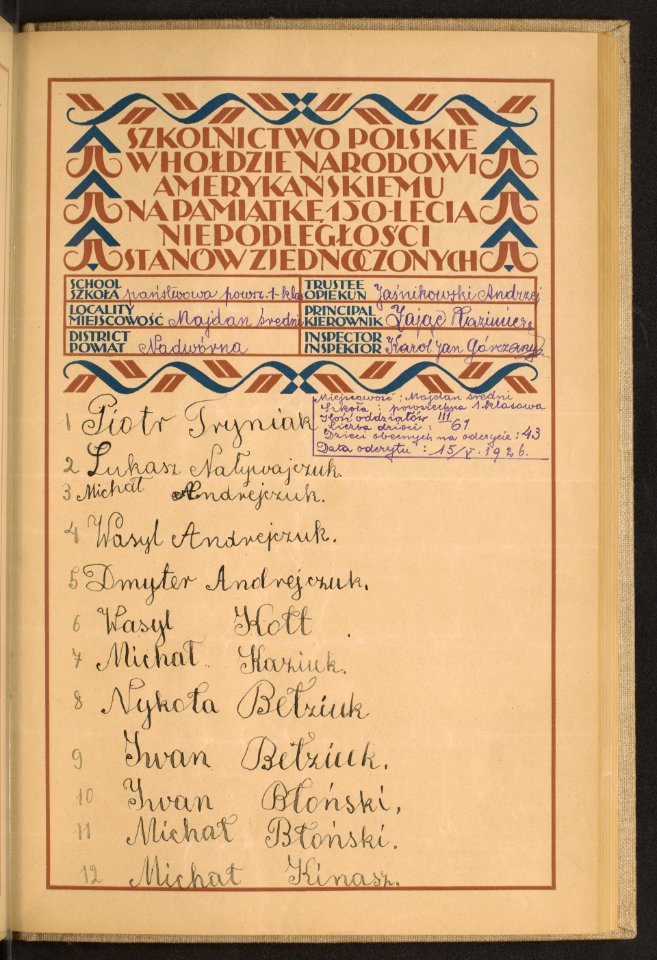 SZKOLNICTWO POLSKIE
W HOŁDZIE NARODOWI
AMERYKAŃSKIEMU
NA PAMIĄTKĘ 150-LECIA
NIEPODLEGŁOŚCI
STANÓW ZJEDNOCZONYCH
SCHOOL
SZKOŁA państwowa powsz. 1-kla
TRUSTEE
OPIEKUN Jaśnikowski Andrzej
LOCALITY
MIEJSCOWOŚĆ Majdan średni
PRINCIPAL
KIEROWNIK Zając Kazimierz
DISTRICT
POWIAT Nadwórna
INSPECTOR
INSPEKTOR Karol Jan
Miejscowość : Majdan średni
Szkoła : powszechna 1 klasowa
Ilość oddziałów III
Liczba dzieci : 61
Dzieci obecnych na odczycie : 43
Data odczytu : 15/V. 1926.
1 Piotr Tryniak
2 Łukasz Natywajczuk.
3 Michał Andrejczuk.
4 Wasyl Andrejczuk.
5 Dmyter Andrejczuk.
6 Wasyl Kott.
7 Michał Kaziuk.
8 Nykoła Bełziuk
9 Iwan Bełziuk.
10 Iwan Błoński.
11 Michał Błoński.
12 Michał Kinasz.